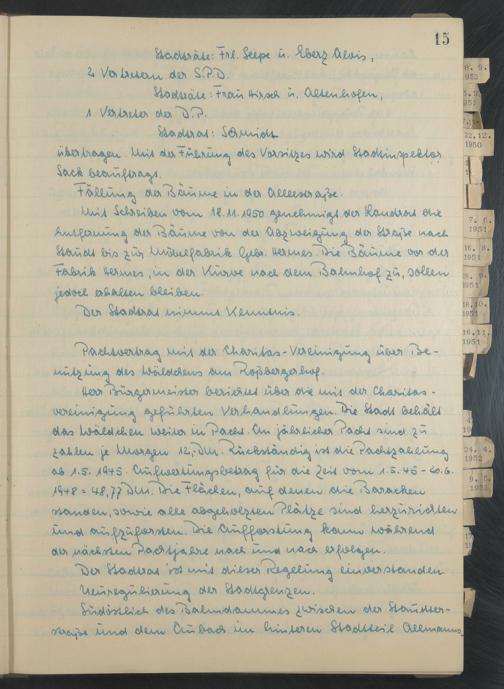 15
Stadträte: Frl. Seepe u. Eberz Alois,
2 Vertretern der S.P.D.
Stadträte: Frau Hirsch u. Altenhofen,
1 Vertreter der D.P.
Stadtrat: Schmidt
übertragen. Mit der Führung des Vorsitzes wird Stadtinspektor
Sack beauftragt.
Fällung der Bäume in der Alleestraße.
Mit Schreiben vom 18.11.1950 genehmigt der Landrat die
Entfernung der Bäume von der Abzweigung der Straße nach
Staudt bis zur Möbelfabrik Gebr. Hermes. Die Bäume vor der
Fabrik Hermes, in der Kurve nach dem Bahnhof zu, sollen
jedoch erhalten bleiben.
Der Stadtrat nimmt Kenntnis.
Pachtvertrag mit der Charitas-Vereinigung über Be-
nutzung des Wäldchens am Roßbergerhof.
Herr Bürgermeister berichtet über die mit der Charitas-
vereinigung geführten Verhandlungen. Die Stadt behält
das Wäldchen weiter in Pacht. An jährlicher Pacht sind zu
zahlen je Morgen 12,- DM. Rückständig ist die Pachtzahlung
ab 1.5.1945. Aufwertungsbetrag für die Zeit vom 1.5.45-20.6.
1948 = 48,77 DM. Die Flächen, auf denen die Baracken
standen, sowie alle abgeholzten Plätze sind herzurichten
und aufzuforsten. Die Aufforstung kann während
der nächsten Pachtjahre nach und nach erfolgen.
Der Stadtrat ist mit dieser Regelung einverstanden
Neuregulierung der Stadtgrenzen.
Südöstlich des Bahndammes zwischen der Staudter-
straße und dem Aubach im hinteren Stadtteil Allmanns
22.12.
1950
7. 6.
1951
16. 8.
1951
18.10.
1951
16.11.
1951
24. 4.
1952